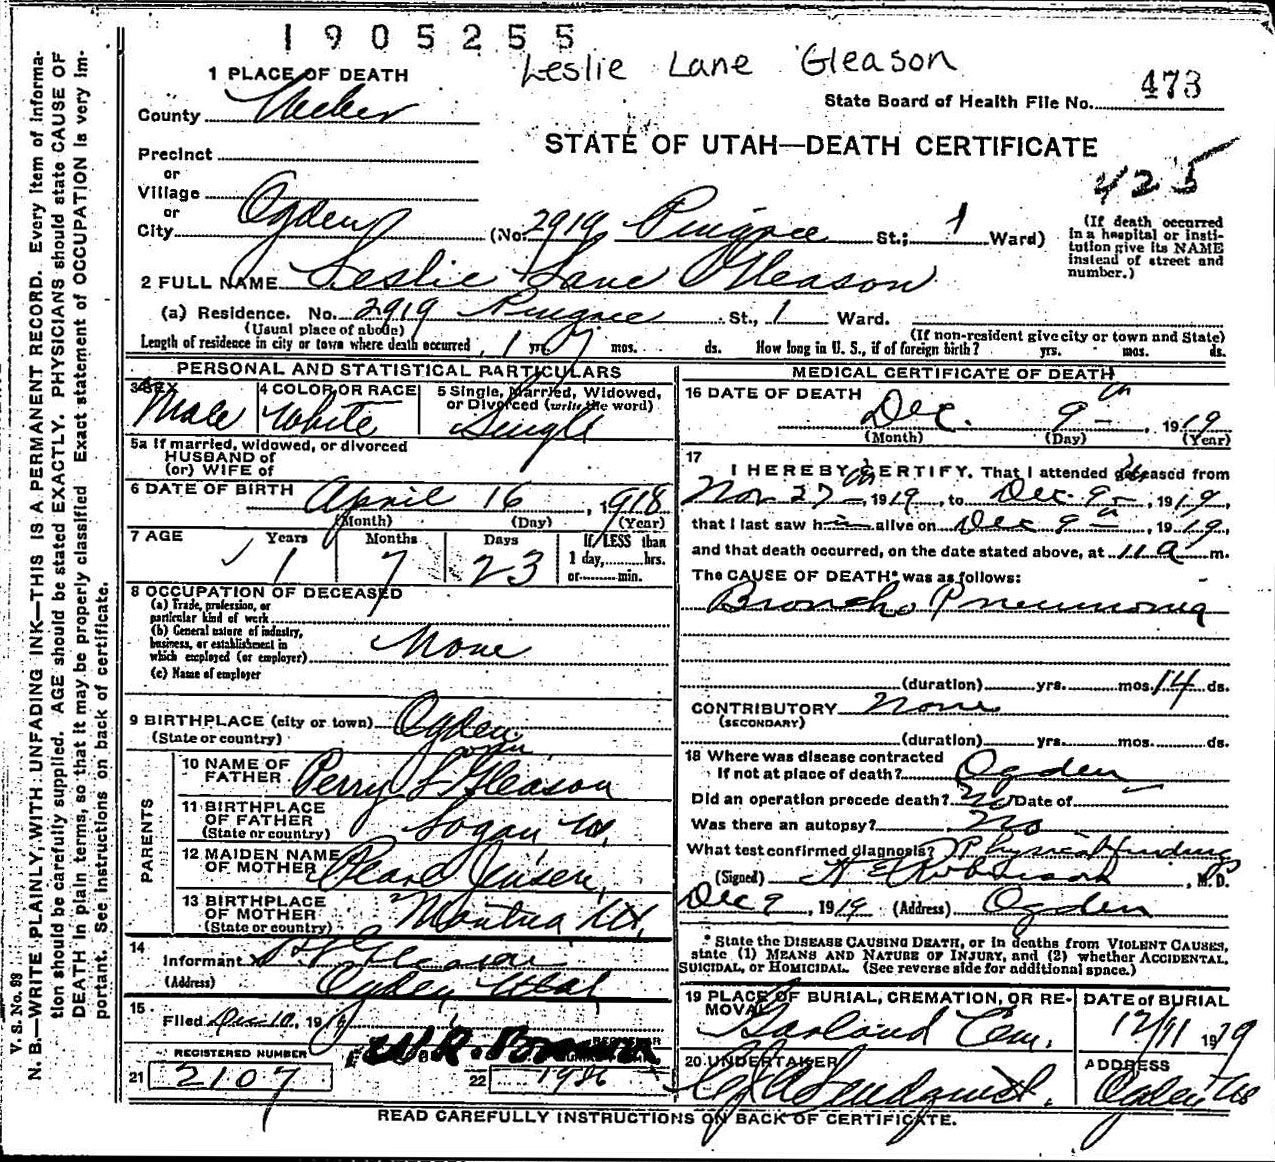 1905255
Leslie Lane Gleason
473
1 PLACE OF DEATH
State Board of Health File No.
County Weber
STATE OF UTAH—DEATH CERTIFICATE
Precinct
or
Village
425
or
City Ogden (No. 2919 Pingree St.; 1 Ward)
(If death occurred in a hospital or institution give its NAME instead of street and number.)
2 FULL NAME Leslie Lane Gleason
(a) Residence. No. 2919 Pingree St., 1 Ward.
(Usual place of abode) (If non-resident give city or town and State)
Length of residence in city or town where death occurred 1 yrs. 7 mos. ds. How long in U. S., if of foreign birth? yrs. mos. ds.
PERSONAL AND STATISTICAL PARTICULARS
3 SEX Male
4 COLOR OR RACE White
5 Single, Married, Widowed, or Divorced (write the word) Single
5a If married, widowed, or divorced
HUSBAND of
(or) WIFE of
6 DATE OF BIRTH April 16, 1918
(Month) (Day) (Year)
7 AGE Years Months Days If LESS than
1 7 23 1 day,........hrs.
or........min.
8 OCCUPATION OF DECEASED
(a) Trade, profession, or
particular kind of work
(b) General nature of industry,
business, or establishment in
which employed (or employer) None
(c) Name of employer
9 BIRTHPLACE (city or town) Ogden
(State or country)
PARENTS
10 NAME OF FATHER Perry L Gleason
11 BIRTHPLACE OF FATHER Logan Ut.
(State or country)
12 MAIDEN NAME OF MOTHER Pearl Jensen
13 BIRTHPLACE OF MOTHER Mantua Ut.
(State or country)
14
Informant Gleason
(Address) Ogden Utah
15
Filed Dec 10, 1919
REGISTERED NUMBER
21 2107
22
MEDICAL CERTIFICATE OF DEATH
16 DATE OF DEATH
Dec. 9th, 1919
(Month) (Day) (Year)
17
I HEREBY CERTIFY, That I attended deceased from
Nov 27th 1919, to Dec. 9th, 1919,
that I last saw him alive on Dec 9th, 1919,
and that death occurred, on the date stated above, at 11 a m.
The CAUSE OF DEATH* was as follows:
Broncho Pneumonia
(duration) yrs. mos. 14 ds.
CONTRIBUTORY None
(SECONDARY)
(duration) yrs. mos. ds.
18 Where was disease contracted
if not at place of death? Ogden
Did an operation precede death? No Date of
Was there an autopsy? No
What test confirmed diagnosis? Physical findings
(Signed) Robinson, M.D.
Dec 9, 1919 (Address) Ogden
* State the DISEASE CAUSING DEATH, or in deaths from VIOLENT CAUSES,
state (1) MEANS AND NATURE OF INJURY, and (2) whether ACCIDENTAL,
SUICIDAL, or HOMICIDAL. (See reverse side for additional space.)
19 PLACE OF BURIAL, CREMATION, OR REMOVAL Garland Cem.
DATE of BURIAL 12/11 1919
20 UNDERTAKER
ADDRESS Ogden
READ CAREFULLY INSTRUCTIONS ON BACK OF CERTIFICATE.
V. S. No. 98
N. B.—WRITE PLAINLY, WITH UNFADING INK—THIS IS A PERMANENT RECORD. Every item of information should be carefully supplied. AGE should be stated EXACTLY. PHYSICIANS should state CAUSE OF DEATH in plain terms, so that it may be properly classified. Exact statement of OCCUPATION is very important. See instructions on back of certificate.